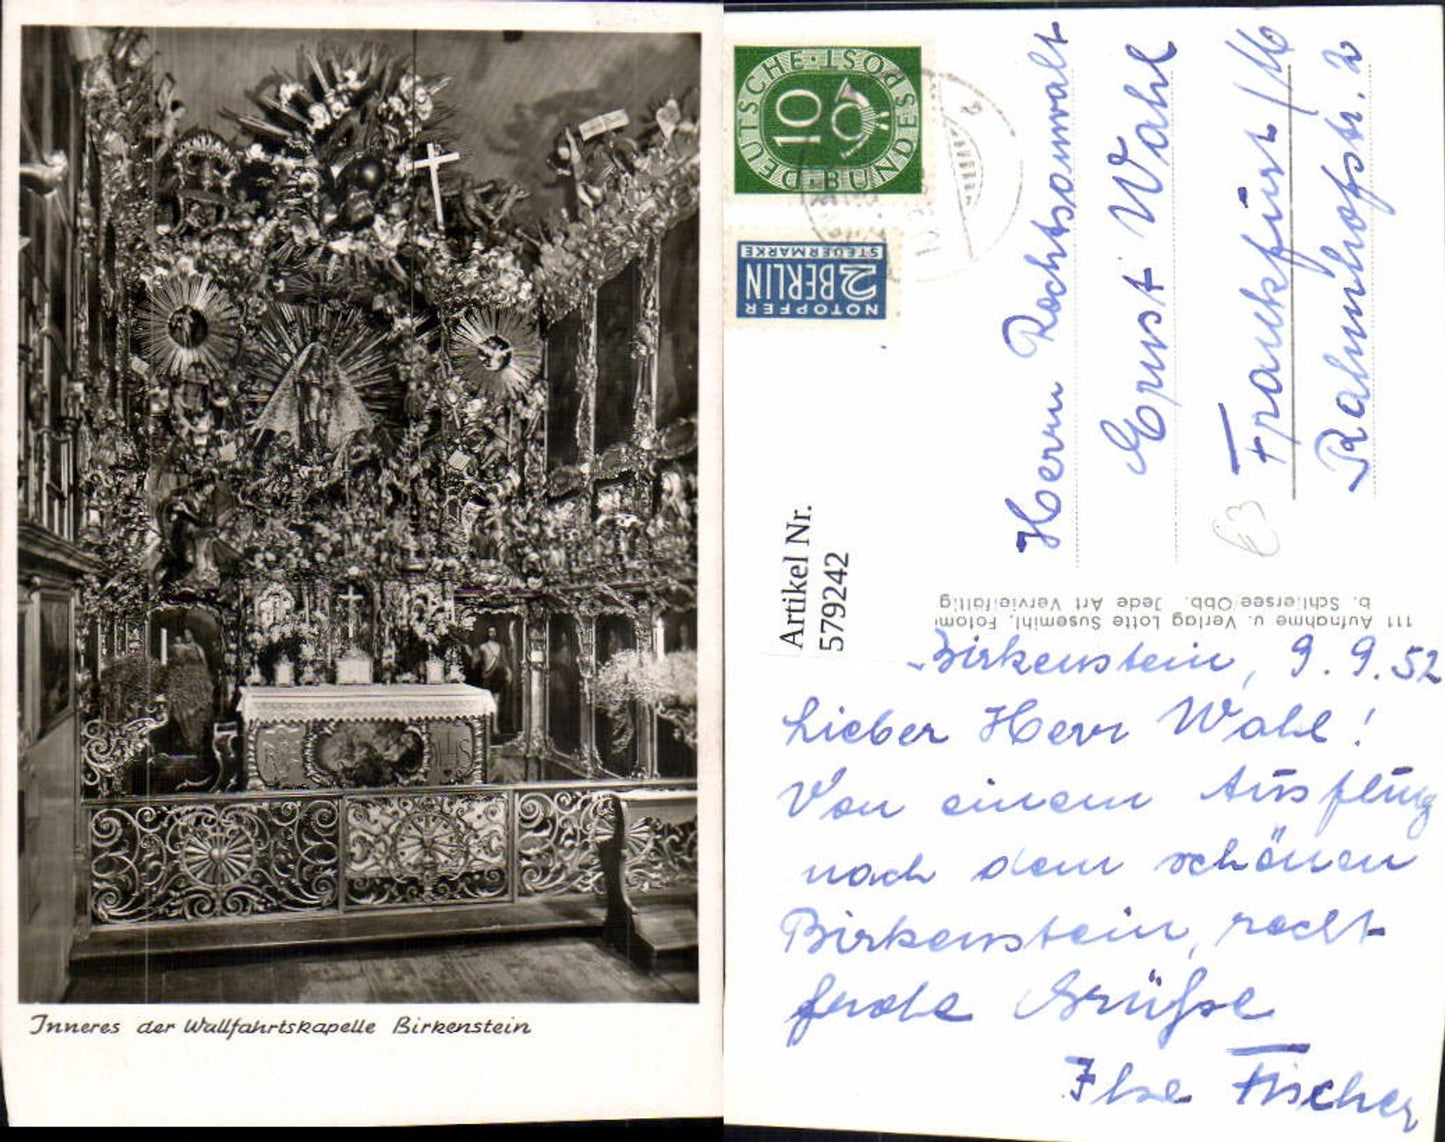 Inneres der Wallfahrtskapelle Birkenstein
DEUTSCHE BUNDESPOST
10
NOTOPFER
2 BERLIN
STEUERMARKE
Herrn Rechtsanwalt
Ernst Wahl
Frankfurt/M
Rahmhofstr. 2
Artikel Nr.
579242
111 Aufnahme u. Verlag Lotte Susemihl, Fotom
b. Schliersee/Obb. Jede Art Vervielfältig
Birkenstein, 9.9.52
Lieber Herr Wahl!
Von einem Ausflug
nach dem schönen
Birkenstein, recht
frohe Grüße
Ilse Fischer
IHS